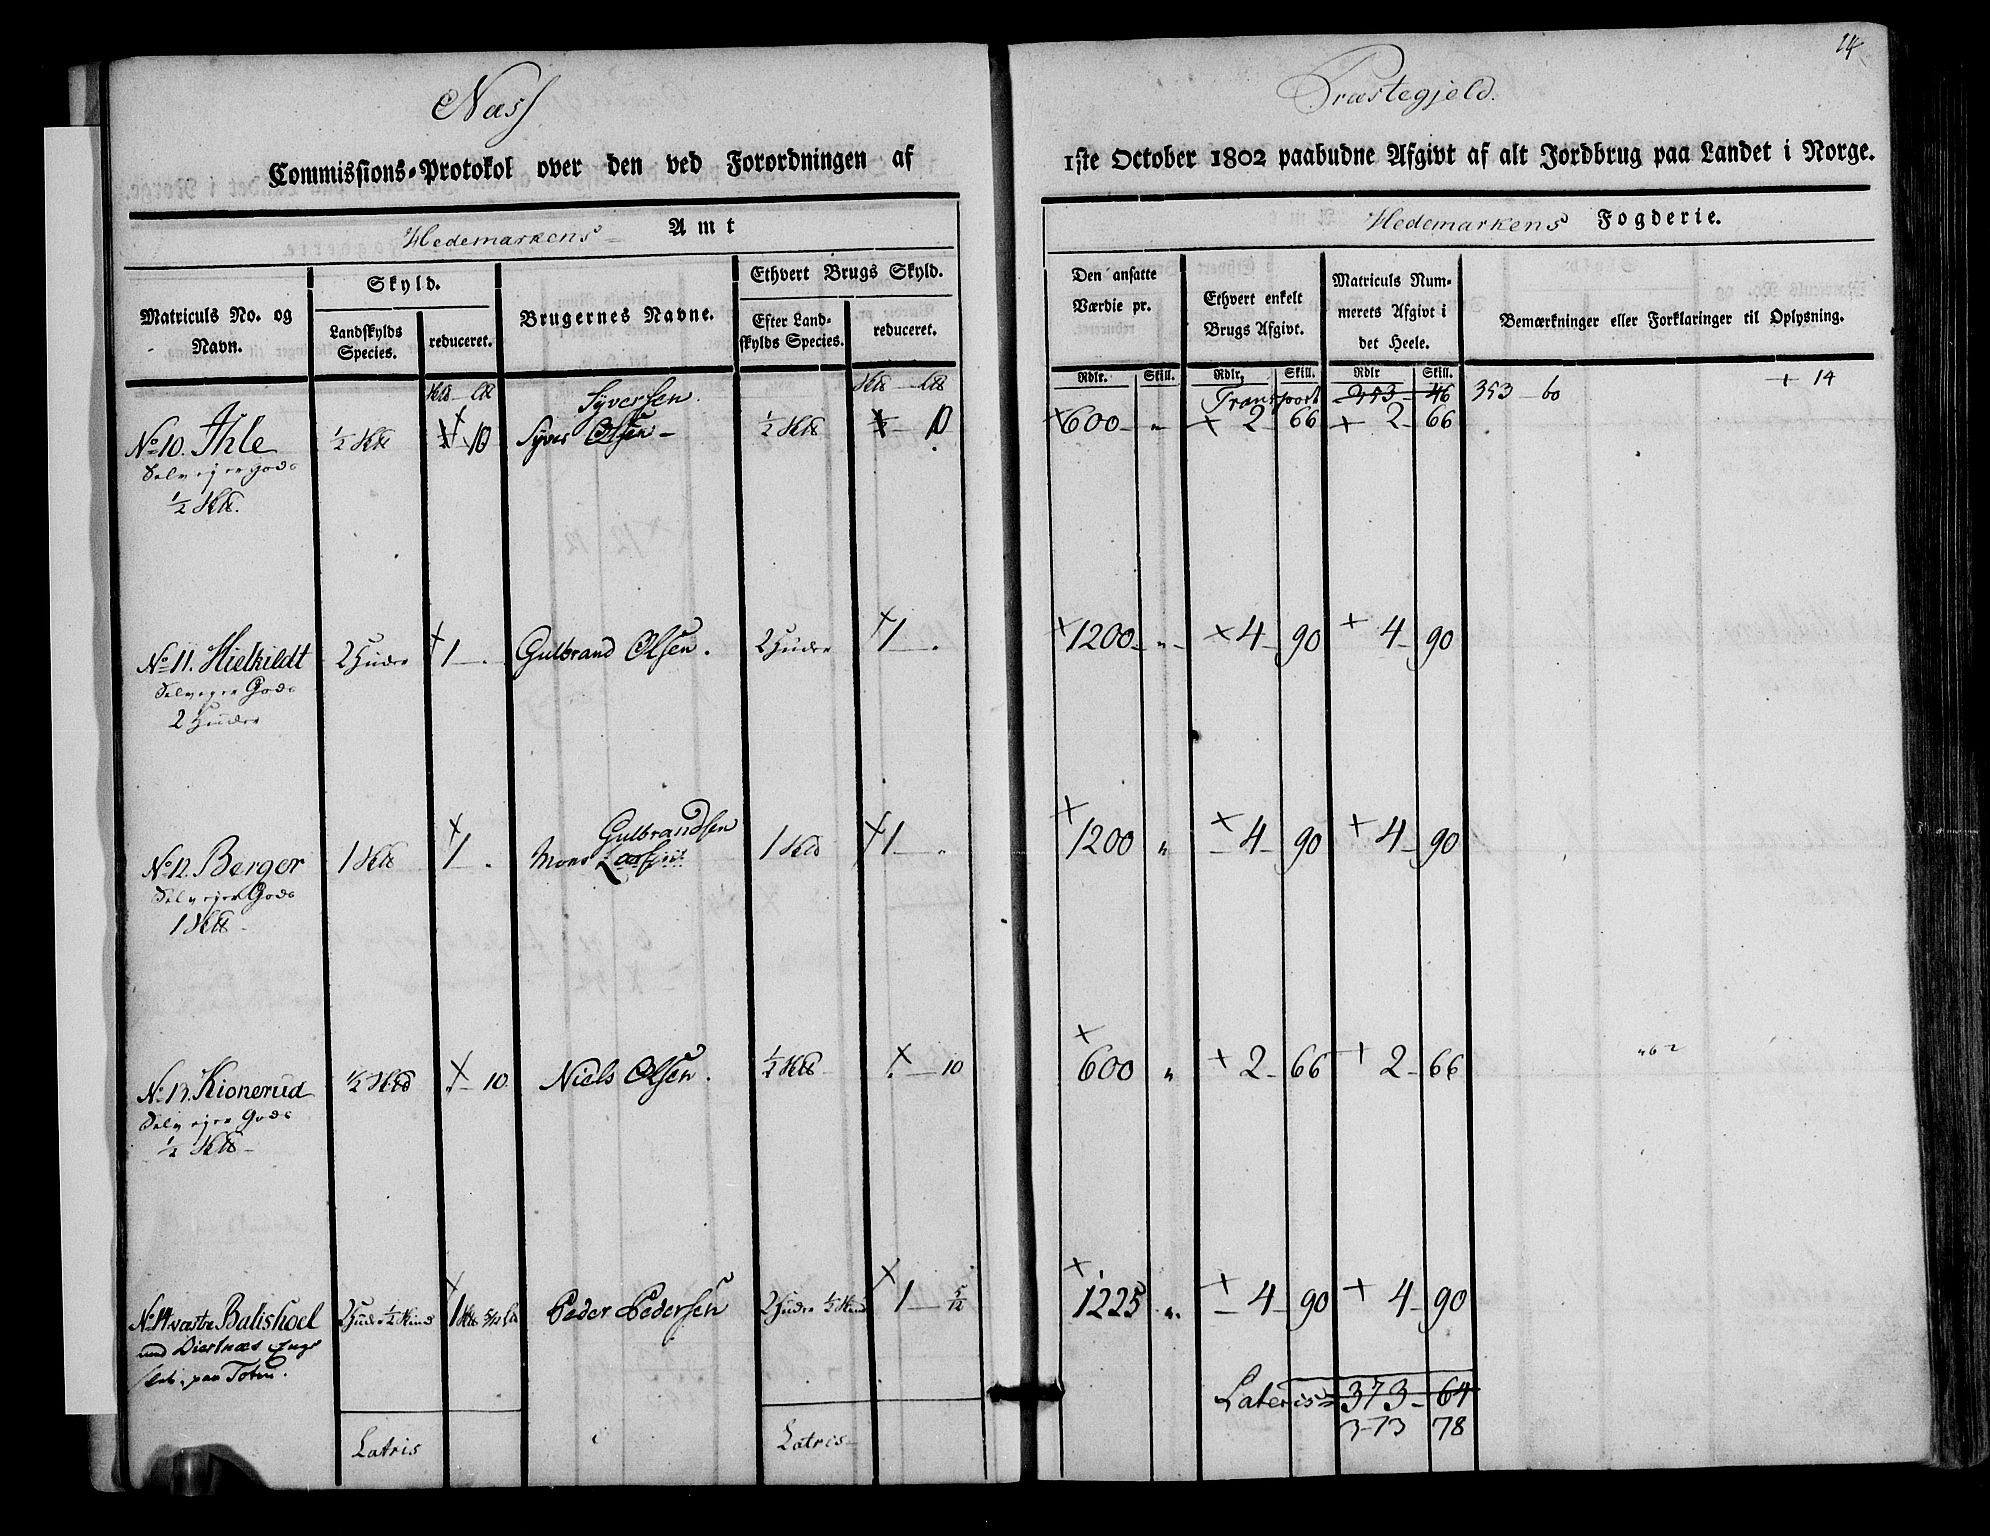 14
Næss Præstegjeld.
Commissions-Protokol over den ved Forordningen af 1ste October 1802 paabudne Afgivt af alt Jordbrug paa Landet i Norge.
Hedemarkens Amt
Hedemarkens Fogderie.
Matriculs No. og Navn.
Skyld.
Landskylds Species.
reduceret.
Brugernes Navne.
Ethvert Brugs Skyld.
Efter Landskylds Species.
reduceret.
Den ansatte Værdie pr.
Ethvert enkelt Brugs Afgivt.
Matriculs Nummerets Afgivt i det Heele.
Bemærkninger eller Forklaringer til Oplysning.
Rdlr. Skill. Rdlr. Skill. Rdlr Skill.
Transport 353 46 353 60 + 14
Syversen.
No 10. Ihle ½ Hd 10 Syver Olsen ½ Hd 10 + 600 " + 2 66 + 2 66
Selvejer Gods
½ Hd.
No 11. Hielkildt 2 Huder + 1 Gulbrand Olsen. 2 Huder + 1 + 1200 " + 4 90 + 4 90
Selvejer Gods
2 Huder
Gulbrandsen
No 12. Berger 1 Hd + 1 Mons Larsen 1 Hd + 1 + 1200 " + 4 90 + 4 90
Selvejer Gods
1 Hd
No 13. Kionerud ½ Hd + 10 Niels Olsen. ½ Hd + 10 + 600 " + 2 66 + 2 66
Selvejer Gods
½ Hd
No 14 vestre Balishoel 2 Huder ½ Skind + 1 5/12 Peder Pedersen 2 Huder ½ Skind + 1 5/12 + 1225 " + 4 90 + 4 90
med Diestnæs Enge
paa Toten.
Latris Latris Lateris 373 64
373 78